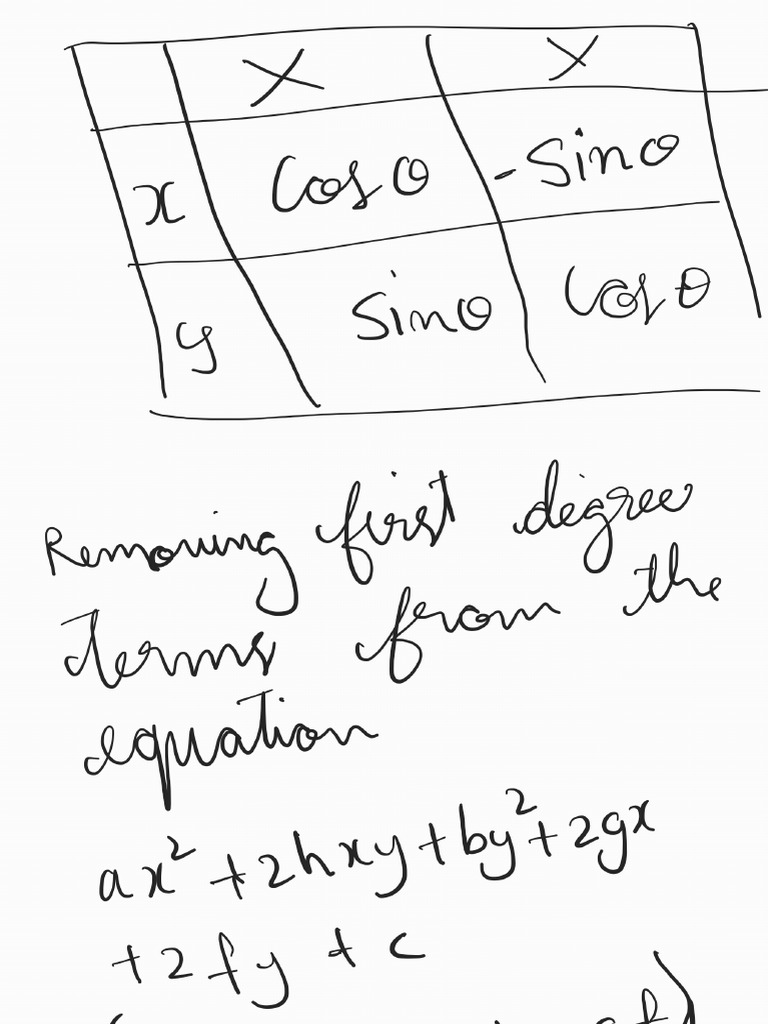 X Y
x cosθ -sinθ
y sinθ cosθ
Removing first degree
terms from the
equation
ax² + 2hxy + by² + 2gx
+ 2fy + c